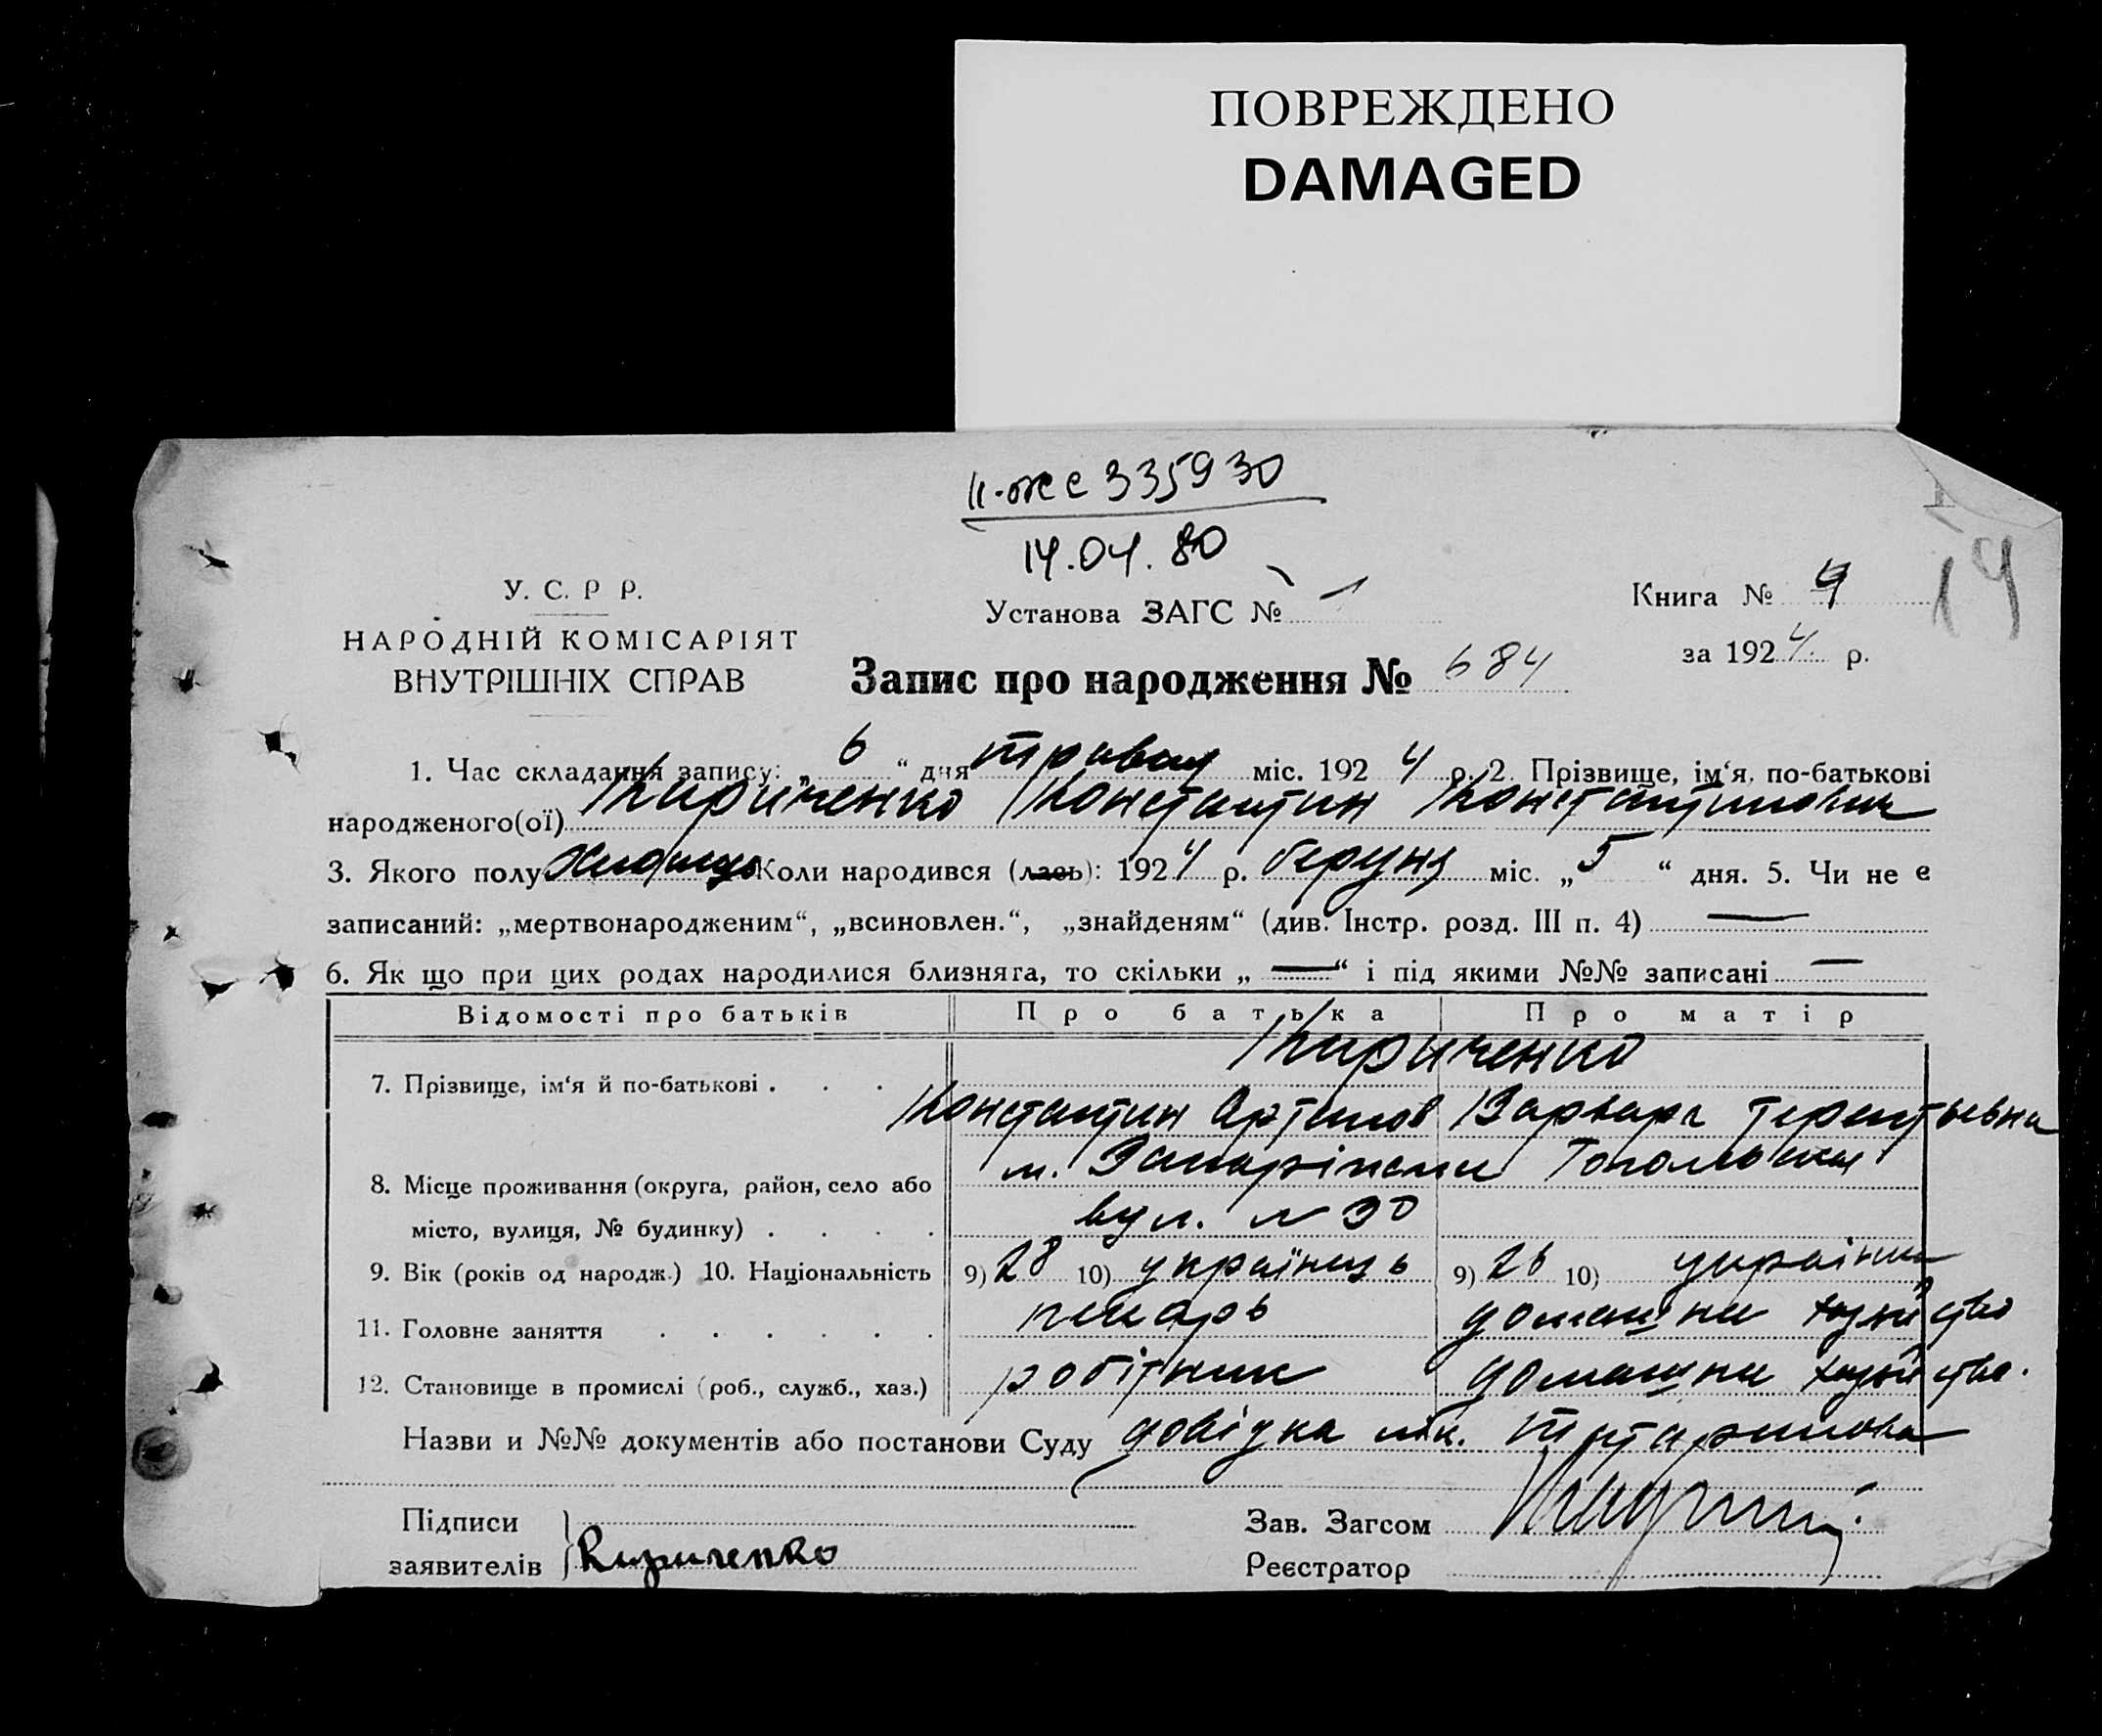 ПОВРЕЖДЕНО
DAMAGED
II-же 335930
14.04.80
У. С. Р Р.
НАРОДНІЙ КОМІСАРІЯТ
ВНУТРІШНІХ СПРАВ
Установа ЗАГС № 1
Книга № 4
14
за 1924 р.
Запис про народження № 684
1. Час складання запису: „ 6 “ дня травня міс. 192 4 р. 2. Прізвище, ім‘я, по-батькові
народженого(ої) Кириченко Константин Константинович
3. Якого полу хлопець Коли народився (лась): 1924 р. березня міс. „ 5 “ дня. 5. Чи не є
записаний: „мертвонародженим“, „всиновлен.“, „знайденям“ (див. Інстр. розд. III п. 4) —
6. Як що при цих родах народилися близняга, то скільки „ — “ і під якими №№ записані —
Відомості про батьків Про батька Про матір
Кириченко
7. Прізвище, ім‘я й по-батькові . . .
Константин Артимов Варвара Терентьевна
8. Місце проживання (округа, район, село або м.
місто, вулиця, № будинку) . . . . вул. № 30
9. Вік (років од народж.) 10. Національність 9) 28 10) українець 9) 26 10) українка
11. Головне заняття . . . . . . пекарь домашне хазяйство
12. Становище в промислі (роб., служб., хаз.) робітник домашне хазяйство.
Назви и №№ документів або постанови Суду довідка лік.
Підписи
заявителів Кириченко
Зав. Загсом
Реєстратор